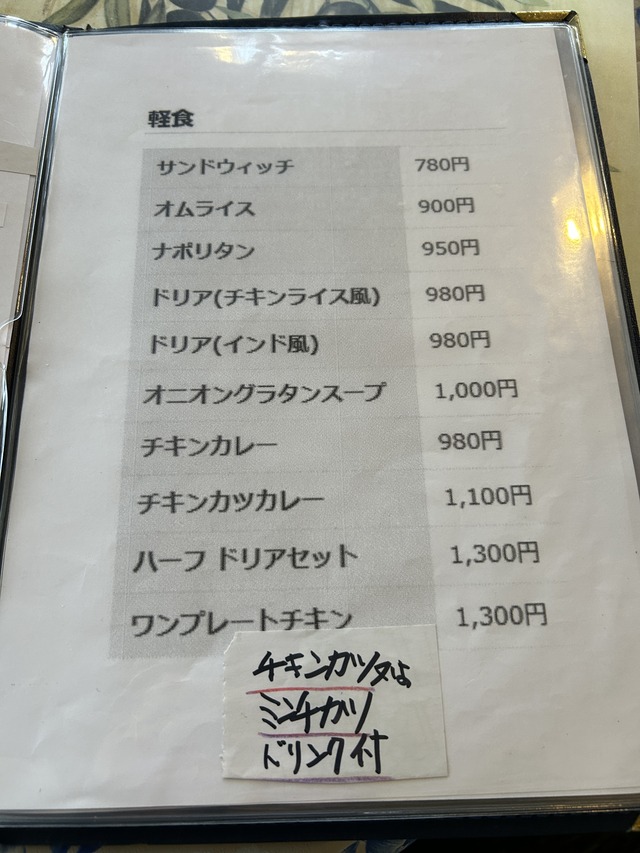 軽食
サンドウィッチ 780円
オムライス 900円
ナポリタン 950円
ドリア(チキンライス風) 980円
ドリア(インド風) 980円
オニオングラタンスープ 1,000円
チキンカレー 980円
チキンカツカレー 1,100円
ハーフ ドリアセット 1,300円
ワンプレートチキン 1,300円
チキンカツ又は
ミンチカツ
ドリンク付